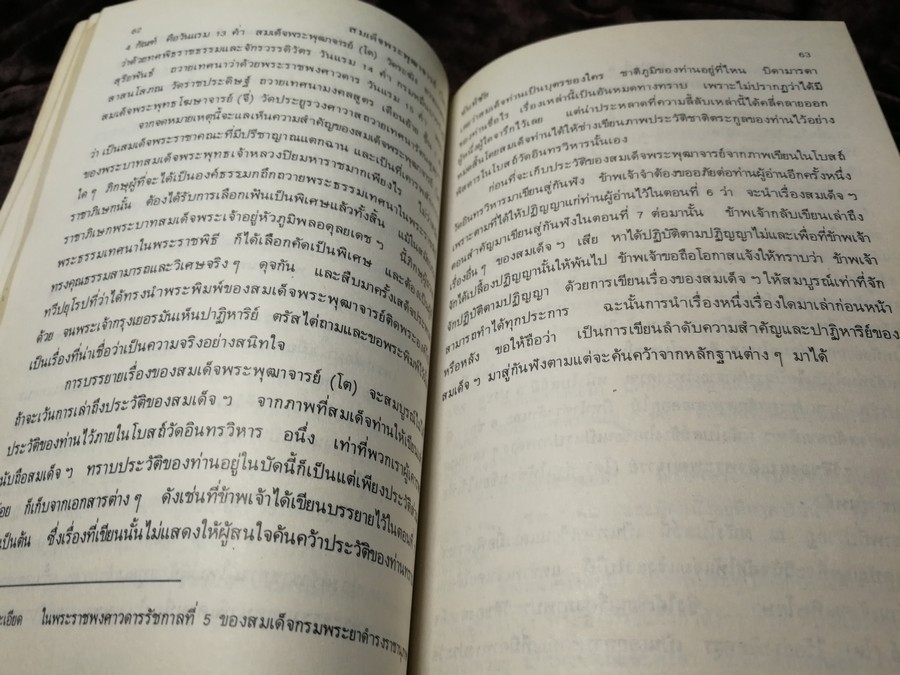 62 สมเด็จพระพุฒาจารย์
4 กัณฑ์ คือวันแรม 13 ค่ำ สมเด็จพระพุฒาจารย์ (โต) วัดระฆัง
ว่าด้วยทศพิธราชธรรมและจักรวรรดิวัตร วันแรม 14 ค่ำ กรมหมื่น
สุริยพันธ์ ถวายเทศนาว่าด้วยพระราชพงศาวดาร วันแรม 15
สาสนโสภณ วัดราชประดิษฐ์ ถวายเทศนามงคลสูตร เดือนอ้าย
สมเด็จพระพุทธโฆษาจารย์ (จี่) วัดประยูรวงศาวาสถวายเทศนา
จากจดหมายเหตุนี้จะเห็นความสำคัญของสมเด็จพระพุฒาจารย์
ว่า เป็นสมเด็จพระราชาคณะที่มีปรีชาญาณแตกฉาน และเป็นที่เคารพ
ของพระบาทสมเด็จพระพุทธเจ้าหลวงปิยมหาราชมากเพียงไร
ใด ๆ ภิกษุผู้ที่จะได้เป็นองค์ธรรมกถึกถวายพระธรรมเทศนาในพระราช
ราชาภิเษกนั้น ต้องได้รับการเลือกเฟ้นเป็นพิเศษแล้วทั้งสิ้น แม้ใน
ราชาภิเษกพระบาทสมเด็จพระเจ้าอยู่หัวภูมิพลอดุลยเดช ๆ นี้
พระธรรมเทศนาในพระราชพิธี ก็ได้เลือกคัดเป็นพิเศษ และต้องเป็น
ทรงคุณธรรมสามารถและวิเศษจริง ๆ ดุจกัน และสืบมาครั้งเสด็จ
ทวีปยุโรปที่ว่าได้ทรงนำพระพิมพ์ของสมเด็จพระพุฒาจารย์ติดพระองค์
ด้วย จนพระเจ้ากรุงเยอรมันเห็นปาฏิหาริย์ ตรัสไต่ถามและขอพระพิมพ์
เป็นเรื่องที่น่าเชื่อว่าเป็นความจริงอย่างสนิทใจ
การบรรยายเรื่องของสมเด็จพระพุฒาจารย์ (โต) จะสมบูรณ์ไม่ได้
ถ้าจะเว้นการเล่าถึงประวัติของสมเด็จ ๆ จากภาพที่สมเด็จท่านให้เขียน
ประวัติของท่านไว้ภายในโบสถ์วัดอินทรวิหาร อนึ่ง เท่าที่พวกเราผู้เคารพ
นับถือสมเด็จ ๆ ทราบประวัติของท่านอยู่ในบัดนี้ก็เป็นแต่เพียงประวัติส่วน
น้อย ก็เก็บจากเอกสารต่าง ๆ ดังเช่นที่ข้าพเจ้าได้เขียนบรรยายไว้ในตอนที่
เป็นต้น ซึ่งเรื่องที่เขียนนั้นไม่แสดงให้ผู้สนใจค้นคว้าประวัติของท่านทราบ
ละเอียด ในพระราชพงศาวดารรัชกาลที่ 5 ของสมเด็จกรมพระยาดำรงราชานุภาพ
63
เลยว่าสมเด็จท่านเป็นบุตรของใคร ชาติภูมิของท่านอยู่ที่ไหน บิดามารดา
ของท่านชื่อไร เรื่องเหล่านี้เป็นอันหมดทางทราบ เพราะไม่ปรากฏว่าได้มี
ผู้หนึ่งผู้ใดจารึกไว้เลย แต่น่าประหลาดที่ความลี้ลับเหล่านี้ได้คลี่คลายออก
หมดสิ้นโดยสมเด็จท่านได้ให้ช่างเขียนภาพประวัติชาติตระกูลของท่านไว้อย่าง
พิสดารในโบสถ์วัดอินทรวิหารนั้นเอง
ก่อนที่จะเก็บประวัติของสมเด็จพระพุฒาจารย์จากภาพเขียนในโบสถ์
วัดอินทรวิหารมาเขียนสู่กันฟัง ข้าพเจ้าจำต้องขออภัยต่อท่านผู้อ่านอีกครั้งหนึ่ง
เพราะตามที่ได้ให้ปฏิญญาแก่ท่านผู้อ่านไว้ในตอนที่ 6 ว่า จะนำเรื่องสมเด็จ ๆ
ตอนสำคัญมาเขียนสู่กันฟังในตอนที่ 7 ต่อมานั้น ข้าพเจ้ากลับเขียนเล่าถึง
เรื่องอื่น ๆ ของสมเด็จ ๆ เสีย หาได้ปฏิบัติตามปฏิญญาไม่และเพื่อที่ข้าพเจ้า
จักได้เปลื้องปฏิญญานั้นให้พ้นไป ข้าพเจ้าขอถือโอกาสแจ้งให้ทราบว่า ข้าพเจ้า
จักปฏิบัติตามปฏิญญา ด้วยการเขียนเรื่องของสมเด็จ ๆ ให้สมบูรณ์เท่าที่จัก
สามารถทำได้ทุกประการ ฉะนั้นการนำเรื่องหนึ่งเรื่องใดมาเล่าก่อนหน้า
หรือหลัง ขอให้ถือว่า เป็นการเขียนลำดับความสำคัญและปาฏิหาริย์ของ
สมเด็จ ๆ มาสู่กันฟังตามแต่จะค้นคว้าจากหลักฐานต่าง ๆ มาได้